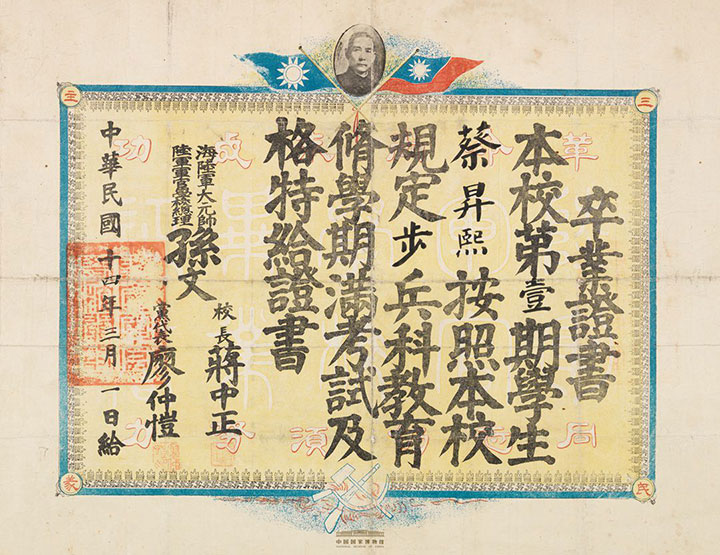 卒業證書
本校第壹期學生
蔡昇熙按照本校
規定步兵科教育
脩學期滿考試及
格特給證書
海陸軍大元帥
陸軍軍官學校總理
孫文
校長蔣中正
黨代表廖仲愷
中華民國十四年三月一日給
三
民
主
義
革
成功
同
須努力
中国国家博物馆
NATIONAL MUSEUM OF CHINA